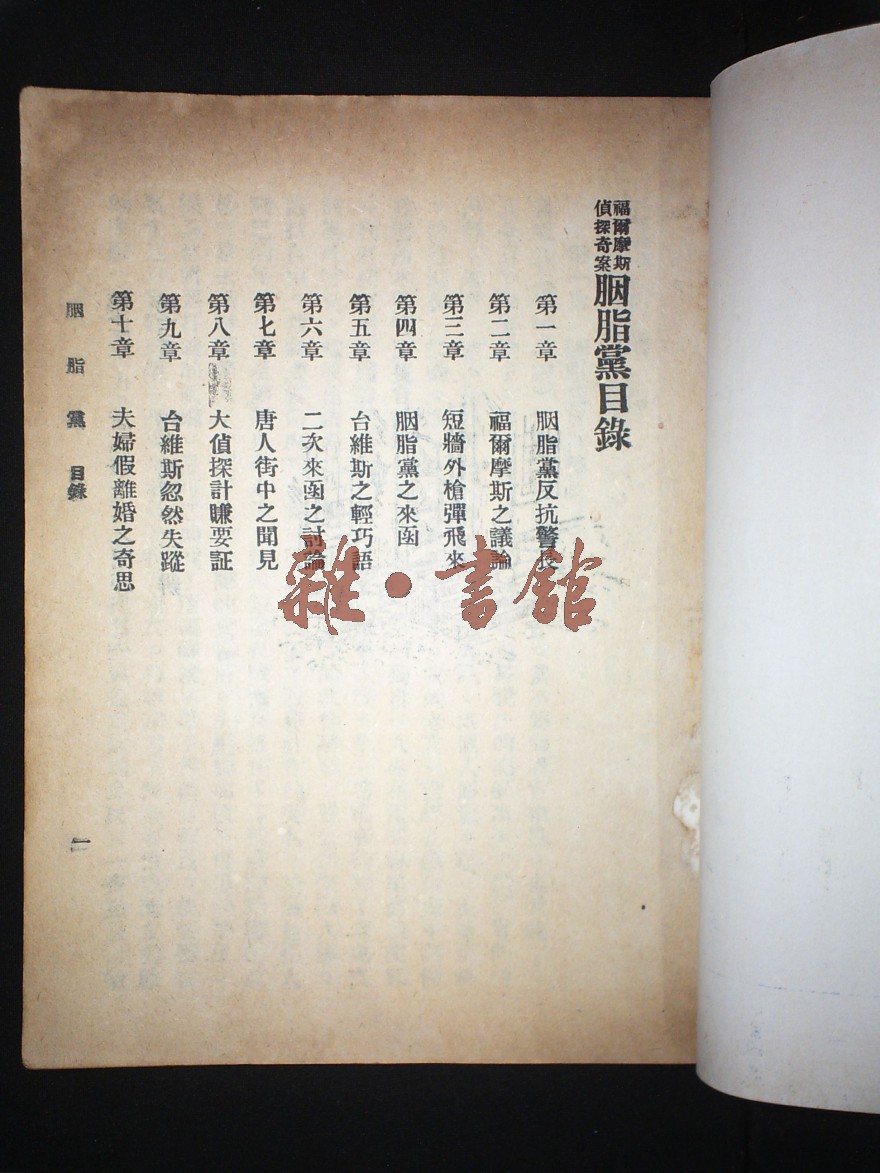 福爾摩斯
偵探奇案
胭脂黨目錄
第一章 胭脂黨反抗警長
第二章 福爾摩斯之議論
第三章 短牆外槍彈飛來
第四章 胭脂黨之來函
第五章 台維斯之輕巧語
第六章 二次來函之討論
第七章 唐人街中之聞見
第八章 大偵探計賺要証
第九章 台維斯忽然失蹤
第十章 夫婦假離婚之奇思
胭脂黨 目錄
一
雜·書館